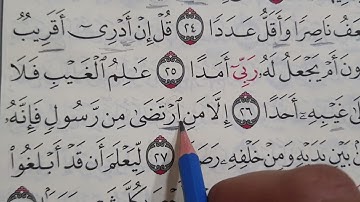 عَفُ نَاصِرًا وَأَقَلُّ عَدَدًا ٢٤ قُلْ إِنْ أَدْرِىٓ أَقَرِيبٌ
ونَ أَمْ يَجْعَلُ لَهُۥ رَبِّىٓ أَمَدًا ٢٥ عَٰلِمُ ٱلْغَيْبِ فَلَا
غَيْبِهِۦٓ أَحَدًا ٢٦ إِلَّا مَنِ ٱرْتَضَىٰ مِن رَّسُولٍ فَإِنَّهُۥ
بَيْنِ يَدَيْهِ وَمِنْ خَلْفِهِۦ رَصَدًا ٢٧ لِّيَعْلَمَ أَن قَدْ أَبْلَغُوا۟